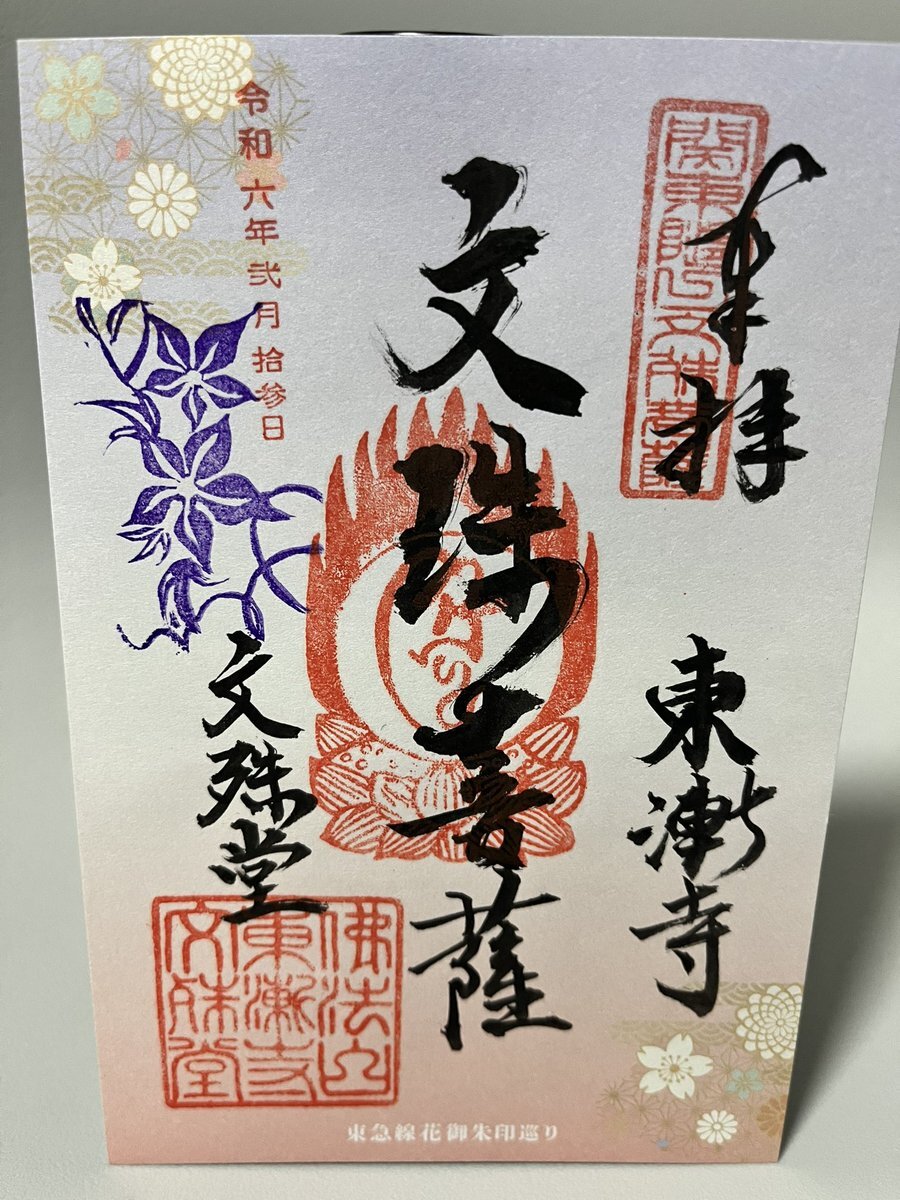 奉拝
関東随一文殊菩薩
東漸寺
文殊菩薩
令和六年弐月拾参日
文殊堂
佛法山
東漸寺
文殊堂
東急線花御朱印巡り